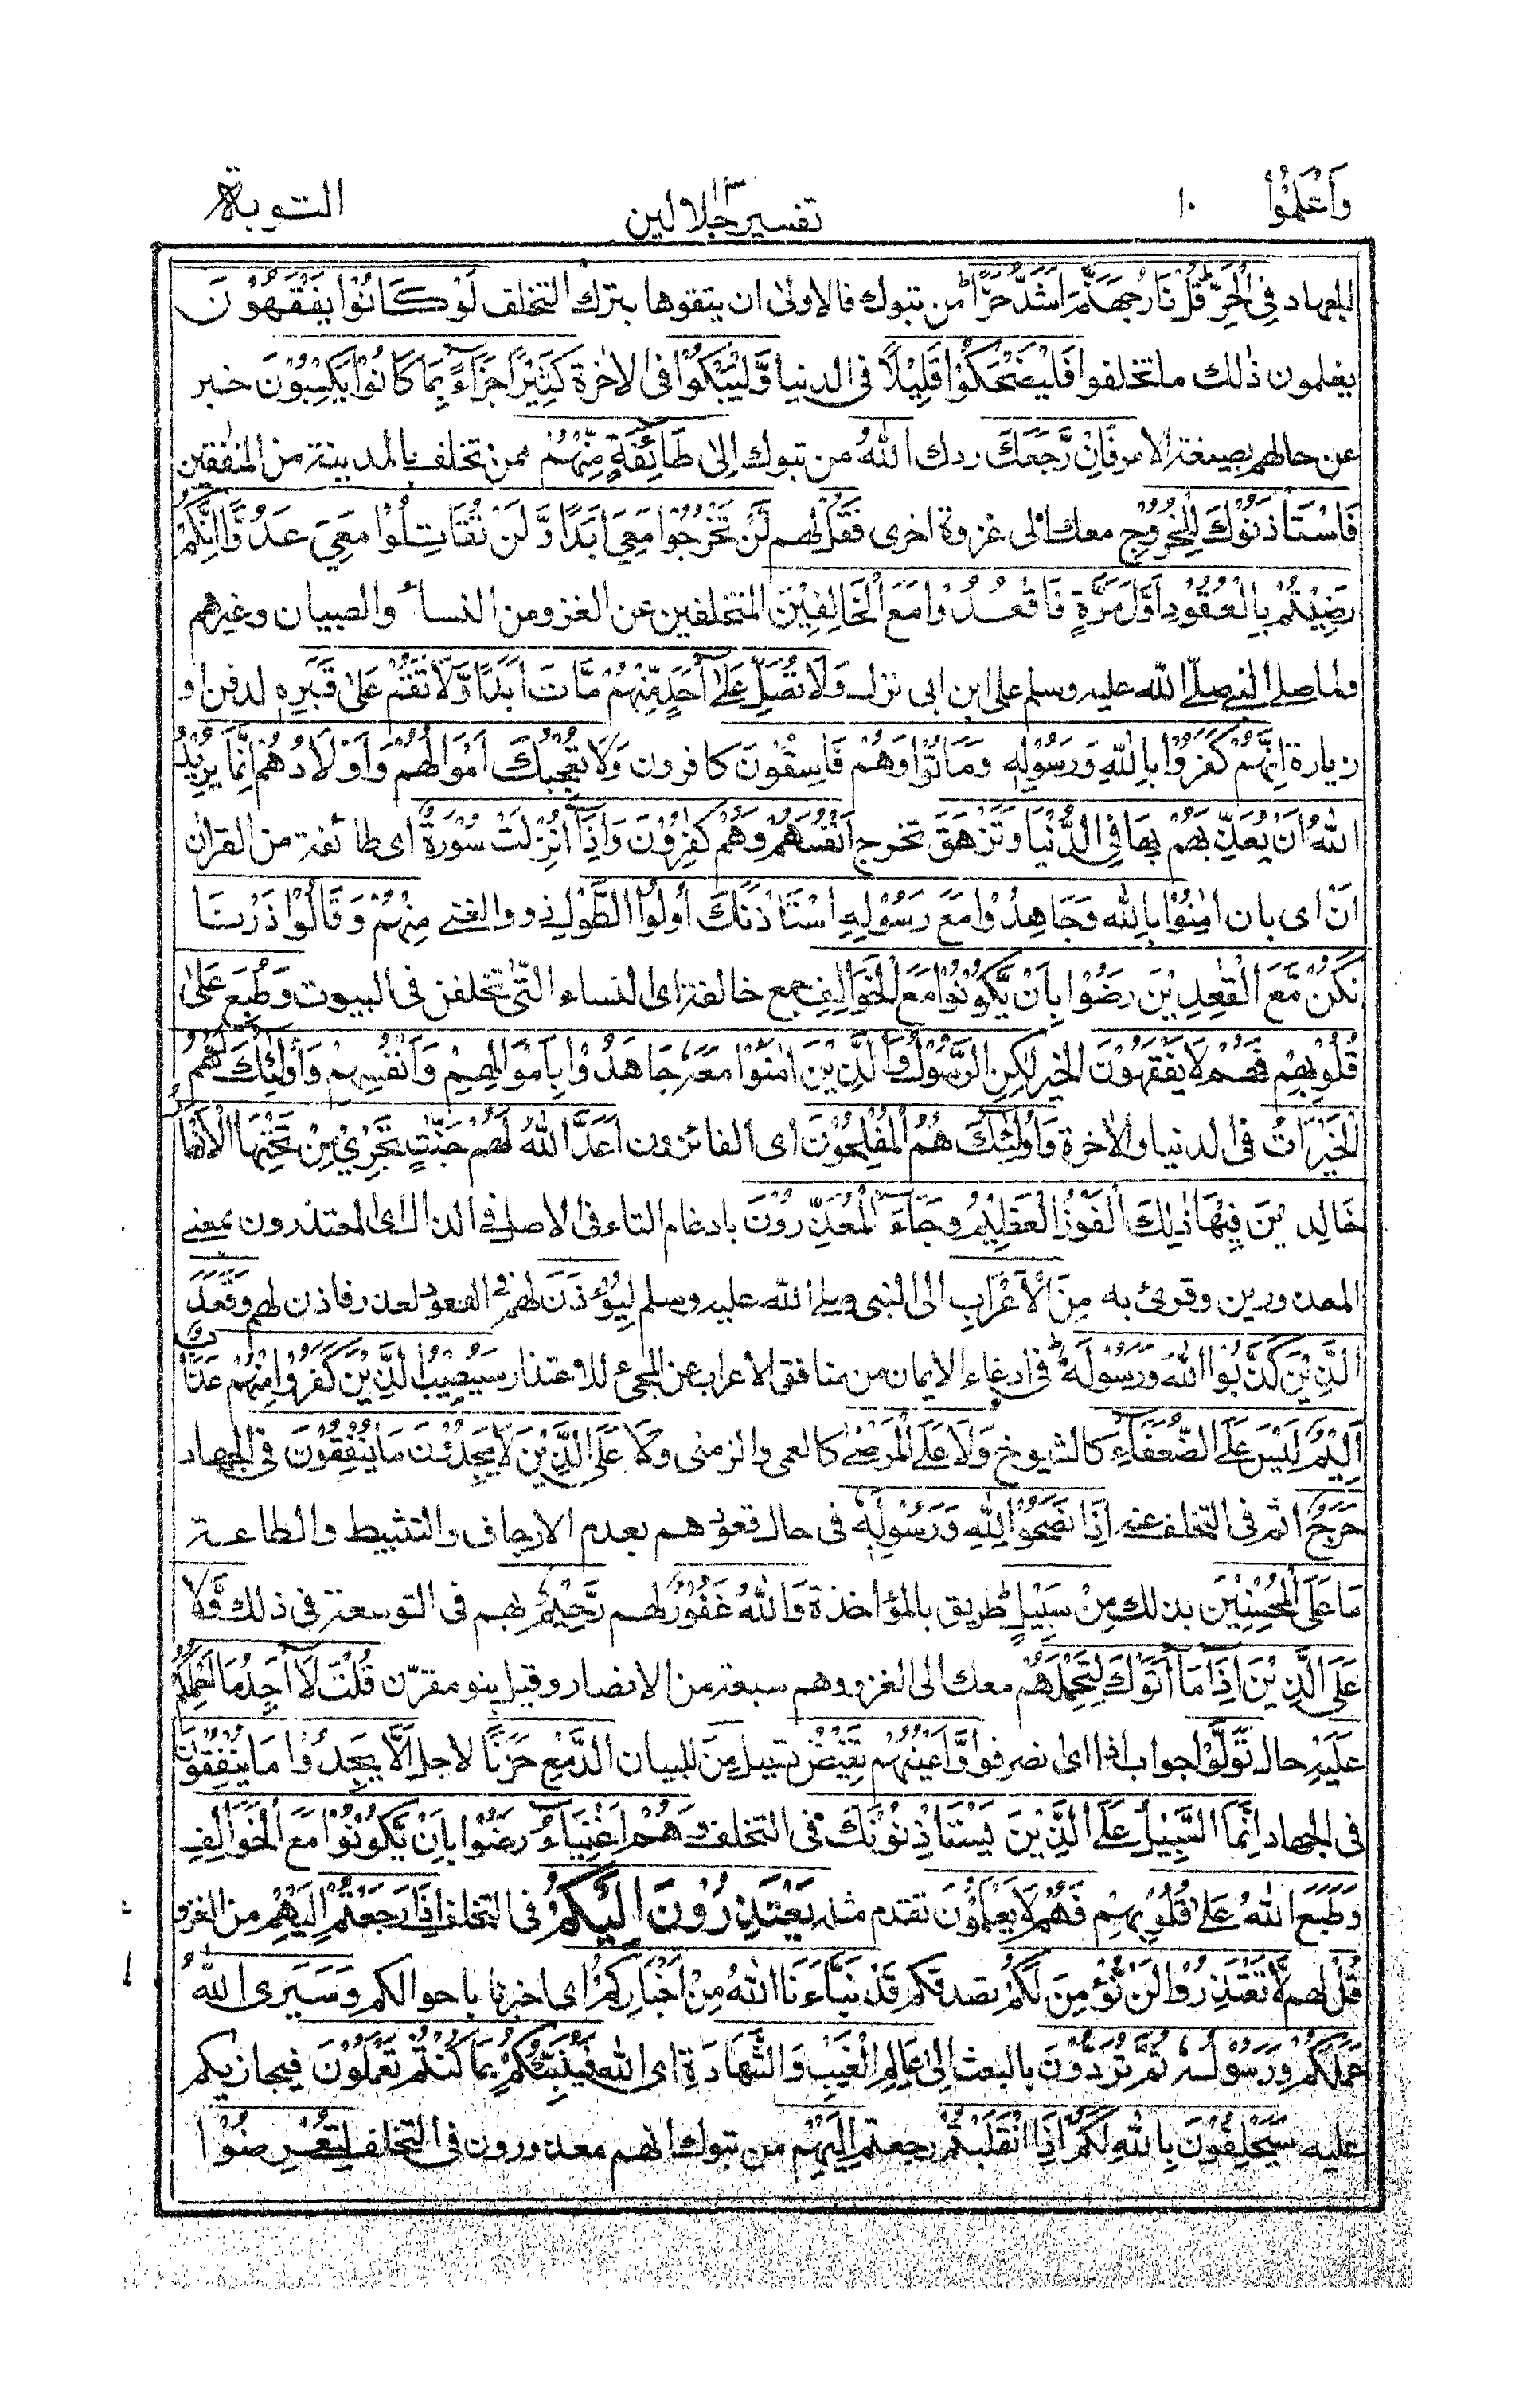 وَاعْلَمُوْا ١٠ تفسیر جلالین التوبة
للجهاد فِي الْحَرِّ قُلْ نَارُ جَهَنَّمَ اَشَدُّ حَرًّا من تبوك فالاولى ان يتقوها بترك التخلف لَوْ كَانُوْا يَفْقَهُوْنَ
يعلمون ذلك ما تخلفوا فَلْيَضْحَكُوْا قَلِيْلًا فى الدنيا وَّلْيَبْكُوْا فى الاٰخرة كَثِيْرًا جَزَآءً بِمَا كَانُوْا يَكْسِبُوْنَ خبر
عن حالهم بصيغة الامر فَاِنْ رَّجَعَكَ ردك اللهُ من تبوك اِلٰى طَآئِفَةٍ مِّنْهُمْ ممن تخلف بالمدينة من المنٰفقين
فَاسْتَاْذَنُوْكَ لِلْخُرُوْجِ معك الى غزوة اخرى فَقُلْ لهم لَّنْ تَخْرُجُوْا مَعِيَ اَبَدًا وَّلَنْ تُقَاتِلُوْا مَعِيَ عَدُوًّا اِنَّكُمْ
رَضِيْتُمْ بِالْقُعُوْدِ اَوَّلَ مَرَّةٍ فَاقْعُدُوْا مَعَ الْخَالِفِيْنَ المتخلفين عن الغزو من النساء والصبيان وغيرهم
ولما صلى النبى صلى الله عليه وسلم على ابن ابى نزل وَلَا تُصَلِّ عَلٰٓى اَحَدٍ مِّنْهُمْ مَّاتَ اَبَدًا وَّلَا تَقُمْ عَلٰى قَبْرِهٖ لدفن او
زيارة اِنَّهُمْ كَفَرُوْا بِاللهِ وَرَسُوْلِهٖ وَمَاتُوْا وَهُمْ فَاسِقُوْنَ كافرون وَلَا تُعْجِبْكَ اَمْوَالُهُمْ وَاَوْلَادُهُمْ اِنَّمَا يُرِيْدُ
اللهُ اَنْ يُّعَذِّبَهُمْ بِهَا فِي الدُّنْيَا وَتَزْهَقَ تخرج اَنْفُسُهُمْ وَهُمْ كٰفِرُوْنَ وَاِذَآ اُنْزِلَتْ سُوْرَةٌ اى طائفة من القرآن
اَنْ اى بان اٰمِنُوْا بِاللهِ وَجَاهِدُوْا مَعَ رَسُوْلِهِ اسْتَاْذَنَكَ اُولُوا الطَّوْلِ ذوو الغنى مِنْهُمْ وَقَالُوْا ذَرْنَا
نَكُنْ مَّعَ الْقٰعِدِيْنَ رَضُوْا بِاَنْ يَّكُوْنُوْا مَعَ الْخَوَالِفِ جمع خالفة اى النساء التى تخلفن فى البيوت وَطُبِعَ عَلٰى
قُلُوْبِهِمْ فَهُمْ لَا يَفْقَهُوْنَ الخير لٰكِنِ الرَّسُوْلُ وَالَّذِيْنَ اٰمَنُوْا مَعَهٗ جَاهَدُوْا بِاَمْوَالِهِمْ وَاَنْفُسِهِمْ وَاُولٰٓئِكَ لَهُمُ
الْخَيْرَاتُ فى الدنيا والاٰخرة وَاُولٰٓئِكَ هُمُ الْمُفْلِحُوْنَ اى الفائزون اَعَدَّ اللهُ لَهُمْ جَنّٰتٍ تَجْرِيْ مِنْ تَحْتِهَا الْاَنْهَارُ
خَالِدِيْنَ فِيْهَا ذٰلِكَ الْفَوْزُ الْعَظِيْمُ وَجَآءَ الْمُعَذِّرُوْنَ بادغام التاء فى الاصل فى الذال اى المعتذرون بمعنى
المعذورين وقرئ به مِنَ الْاَعْرَابِ الى النبى صلى الله عليه وسلم لِيُؤْذَنَ لَهُمْ فى القعود لعذر فاذن لهم وَقَعَدَ
الَّذِيْنَ كَذَبُوا اللهَ وَرَسُوْلَهٗ فى ادعاء الايمان من منافقى الاعراب عن المجئ للاعتذار سَيُصِيْبُ الَّذِيْنَ كَفَرُوْا مِنْهُمْ عَذَابٌ
اَلِيْمٌ لَيْسَ عَلَى الضُّعَفَآءِ كالشيوخ وَلَا عَلَى الْمَرْضٰى كالعمى والزمنى وَلَا عَلَى الَّذِيْنَ لَا يَجِدُوْنَ مَا يُنْفِقُوْنَ فى الجهاد
حَرَجٌ اثم فى التخلف عنه اِذَا نَصَحُوْا لِلّٰهِ وَرَسُوْلِهٖ فى حال قعودهم بعدم الارجاف والتثبيط والطاعة
مَا عَلَى الْمُحْسِنِيْنَ بذلك مِنْ سَبِيْلٍ طريق بالمؤاخذة وَاللهُ غَفُوْرٌ لهم رَّحِيْمٌ بهم فى التوسعة فى ذلك وَّلَا
عَلَى الَّذِيْنَ اِذَا مَآ اَتَوْكَ لِتَحْمِلَهُمْ معك الى الغزو وهم سبعة من الانصار وقيل بنو مقرّن قُلْتَ لَآ اَجِدُ مَآ اَحْمِلُكُمْ
عَلَيْهِ حال تَوَلَّوْا جواب اذا اى انصرفوا وَّاَعْيُنُهُمْ تَفِيْضُ تسيل مِنَ للبيان الدَّمْعِ حَزَنًا لاجل اَلَّا يَجِدُوْا مَا يُنْفِقُوْنَ
فى الجهاد اِنَّمَا السَّبِيْلُ عَلَى الَّذِيْنَ يَسْتَاْذِنُوْنَكَ فى التخلف وَهُمْ اَغْنِيَآءُ رَضُوْا بِاَنْ يَّكُوْنُوْا مَعَ الْخَوَالِفِ
وَطَبَعَ اللهُ عَلٰى قُلُوْبِهِمْ فَهُمْ لَا يَعْلَمُوْنَ تقدم مثله يَعْتَذِرُوْنَ اِلَيْكُمْ فى التخلف اِذَا رَجَعْتُمْ اِلَيْهِمْ من الغزو
قُلْ لهم لَّا تَعْتَذِرُوْا لَنْ نُّؤْمِنَ لَكُمْ نصدقكم قَدْ نَبَّاَنَا اللهُ مِنْ اَخْبَارِكُمْ اى اخبرنا باحوالكم وَسَيَرَى اللهُ
عَمَلَكُمْ وَرَسُوْلُهٗ ثُمَّ تُرَدُّوْنَ بالبعث اِلٰى عَالِمِ الْغَيْبِ وَالشَّهَادَةِ اى الله فَيُنَبِّئُكُمْ بِمَا كُنْتُمْ تَعْمَلُوْنَ فيجازيكم
عليه سَيَحْلِفُوْنَ بِاللهِ لَكُمْ اِذَا انْقَلَبْتُمْ رجعتم اِلَيْهِمْ من تبوك انهم معذورون فى التخلف لِتُعْرِضُوْا